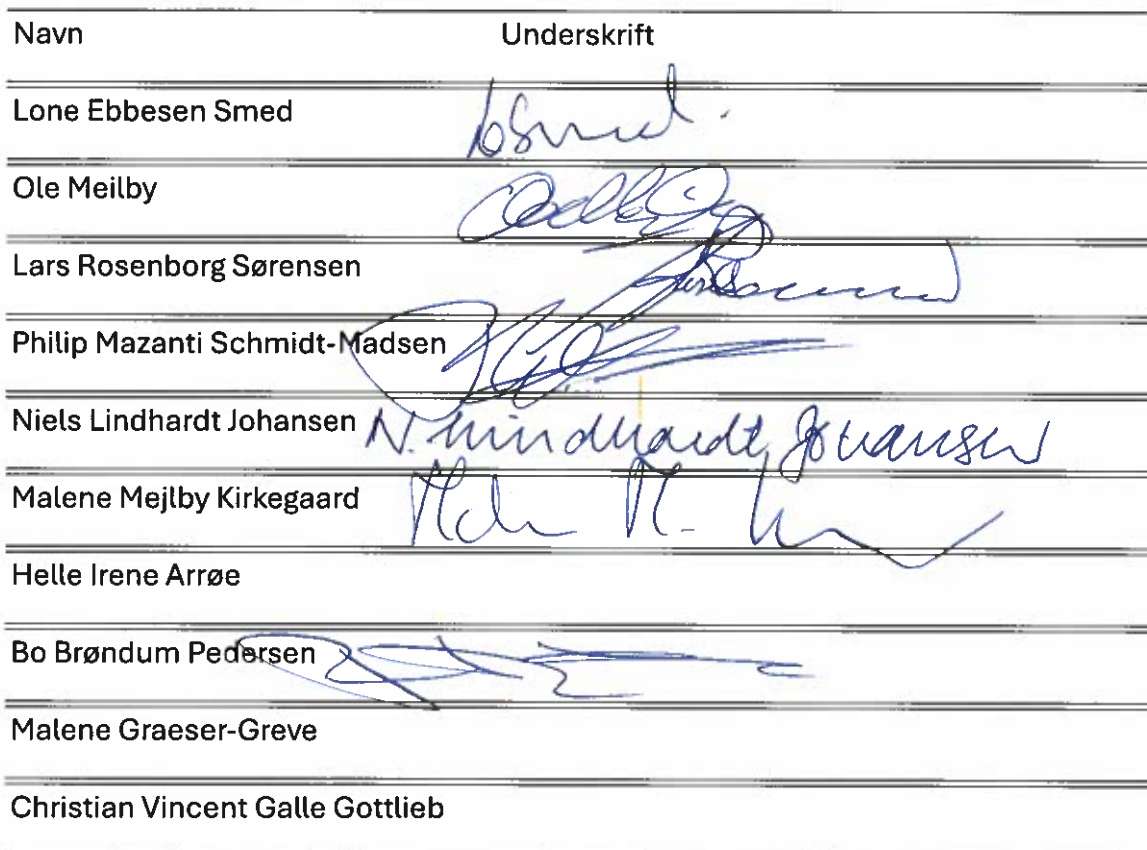 Navn Underskrift
Lone Ebbesen Smed
Ole Meilby
Lars Rosenborg Sørensen
Philip Mazanti Schmidt-Madsen
Niels Lindhardt Johansen N. Lindhardt Johansen
Malene Mejlby Kirkegaard
Helle Irene Arrøe
Bo Brøndum Pedersen
Malene Graeser-Greve
Christian Vincent Galle Gottlieb